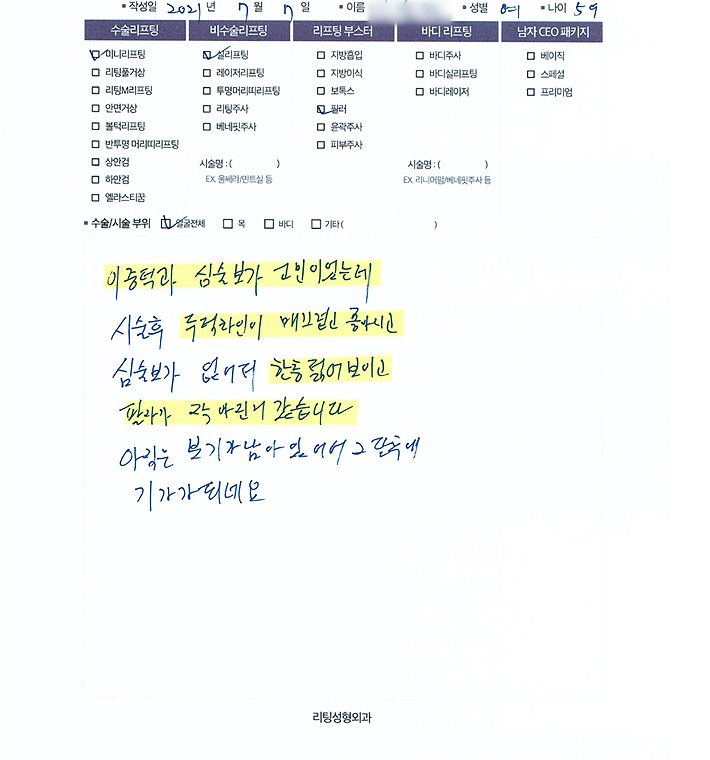 ▪ 작성일 2021 년 7 월 7 일 ▪ 이름 ▪ 성별 여 ▪ 나이 59
수술리프팅 비수술리프팅 리프팅 부스터 바디 리프팅 남자 CEO 패키지
☑ 미니리프팅 ☑ 실리프팅 □ 지방흡입 □ 바디주사 □ 베이직
□ 리팅풀거상 □ 레이저리프팅 □ 지방이식 □ 바디실리프팅 □ 스페셜
□ 리팅M리프팅 □ 투명머리띠리프팅 □ 보톡스 □ 바디레이저 □ 프리미엄
□ 안면거상 □ 리팅주사 ☑ 필러
□ 볼턱리프팅 □ 베네핏주사 □ 윤곽주사
□ 반투명 머리띠리프팅 □ 피부주사
□ 상안검 시술명 : ( ) 시술명 : ( )
□ 하안검 EX. 울쎄라/민트실 등 EX. 리니어펌/베네핏주사 등
□ 엘라스티꿈
▪ 수술/시술 부위 ☑ 얼굴전체 □ 목 □ 바디 □ 기타 ( )
이중턱과 심술보가 고민이었는데
시술후 투턱라인이 매끄럽고 좋아지고
심술보가 없어져 한층 젊어보이고
필라가 자리 같습니다
아직은 붓기가 남아 있어서 그 단축에
기가가되네요
리팅성형외과